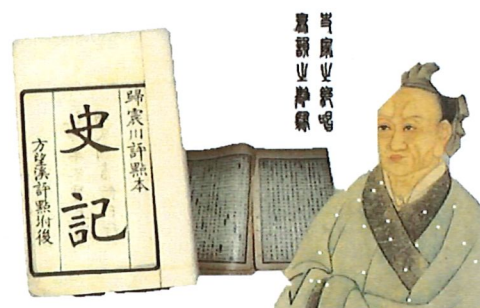 歸震川評點本
史記
方望溪評點坿後
史家之絕唱
無韻之離騷